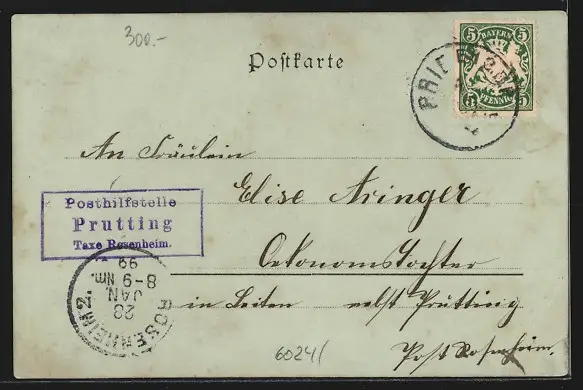 300.-
Postkarte
5 BAYERN 5
5 PFENNIG 5
PRIE
An Fräulein
Elise Aringer
Posthilfstelle
Prutting
Taxe Rosenheim.
Oekonomstochter
in Leiten nebst Prutting
Post Rosenheim.
ROSENHEIM 2.
28
JAN.
8-9 Nm.
99
6024/